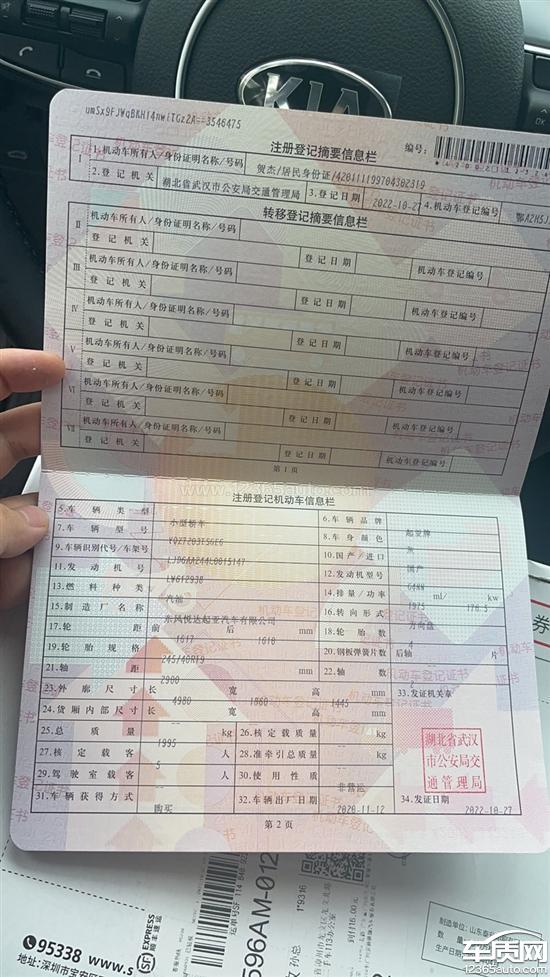 KIA
umSx9FJWqBKHI4nwiTGz2A==3546475
注册登记摘要信息栏
编号:
I
1.机动车所有人/身份证明名称/号码
贺杰/居民身份证/420111199704302319
2.登记机关
湖北省武汉市公安局交通管理局
3.登记日期
2022-10-27
4.机动车登记编号
转移登记摘要信息栏
II
机动车所有人/身份证明名称/号码
登记机关
登记日期
机动车登记编号
III
机动车所有人/身份证明名称/号码
登记机关
登记日期
机动车登记编号
IV
机动车所有人/身份证明名称/号码
登记机关
登记日期
机动车登记编号
V
机动车所有人/身份证明名称/号码
登记机关
登记日期
机动车登记编号
VI
机动车所有人/身份证明名称/号码
登记机关
登记日期
机动车登记编号
VII
机动车所有人/身份证明名称/号码
登记机关
登记日期
机动车登记编号
第1页
www.12365auto.com
注册登记机动车信息栏
5.车辆类型
小型轿车
6.车辆品牌
起亚牌
7.车辆型号
8.车身颜色
灰
9.车辆识别代号/车架号
10.国产/进口
国产
11.发动机号
12.发动机型号
G4NN
13.燃料种类
汽油
14.排量/功率
1975 ml/ kw
15.制造厂名称
东风悦达起亚汽车有限公司
16.转向形式
方向盘
17.轮距
前 1617 后 1618 mm
18.轮胎数
19.轮胎规格
245/40R19
20.钢板弹簧片数
后轴 -- 片
21.轴距
2900 mm
22.轴数
23.外廓尺寸
长 4980 宽 1860 高 1445 mm
33.发证机关章
24.货厢内部尺寸
长 宽 高 mm
25.总质量
1995 kg
26.核定载质量
-- kg
27.核定载客
5 人
28.准牵引总质量
-- kg
29.驾驶室载客
-- 人
30.使用性质
非营运
31.车辆获得方式
购买
32.车辆出厂日期
2020-11-12
34.发证日期
2022-10-27
湖北省武汉
市公安局交
通管理局
第2页
95338
www.s
SF EXPRESS
顺丰速运
596AM-012
孙总
1*9316
券
制造单位:
山东泰
数量
生产日期
车质网
12365auto.com